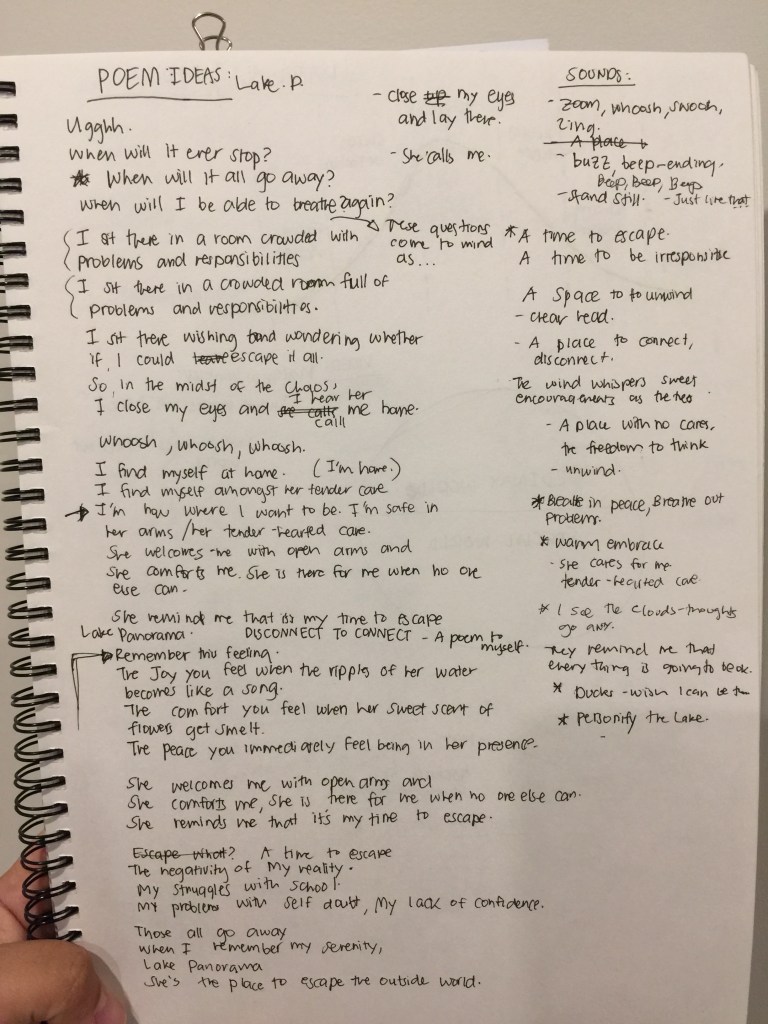 POEM IDEAS: Lake. P.
Ugghh.
When will it ever stop?
* When will it all go away?
When will I be able to breathe again?
These questions
come to mind
as...
I sit there in a room crowded with
problems and responsibilities
I sit there in a crowded room full of
problems and responsibilities.
I sit there wishing and wondering whether
if I could leave escape it all.
So, in the midst of the chaos,
I close my eyes and she calls I hear her call me home.
whoosh, whoosh, whoosh.
I find myself at home. (I'm home.)
I find myself amongst her tender care
→ I'm now where I want to be. I'm safe in
her arms / her tender-hearted care.
She welcomes me with open arms and
She comforts me. She is there for me when no one
else can.
She remind me that it's my time to escape
Lake Panorama. DISCONNECT TO CONNECT - A poem to
myself.
Remember this feeling.
The Joy you feel when the ripples of her water
becomes like a song.
The comfort you feel when her sweet scent of
flowers get smelt.
The peace you immediately feel being in her presence.
She welcomes me with open arms and
She comforts me, She is there for me when no one else can.
She reminds me that it's my time to escape.
Escape what? A time to escape
The negativity of my reality.
My struggles with school.
My problems with self doubt, My lack of confidence.
Those all go away
when I remember my serenity,
Lake Panorama
She's the place to escape the outside world.
- close up my eyes
and lay there.
- She calls me.
SOUNDS:
- Zoom, whoosh, swoosh,
zing.
- A place to
- buzz, beep-ending.
Beep, Beep, Beep
- Stand still. - Just like that
* A time to escape.
A time to be irresponsible
A space to unwind
- clear head.
- A place to connect,
disconnect.
The wind whispers sweet
encouragements as the
- A place with no cares,
the freedom to think
- unwind.
* Breathe in peace, Breathe out
problems.
* warm embrace
- She cares for me
tender-hearted care
* I see the clouds-thoughts
go away.
They remind me that
every thing is going to be ok.
* Ducks - wish I can be them
* Personify the Lake.
-